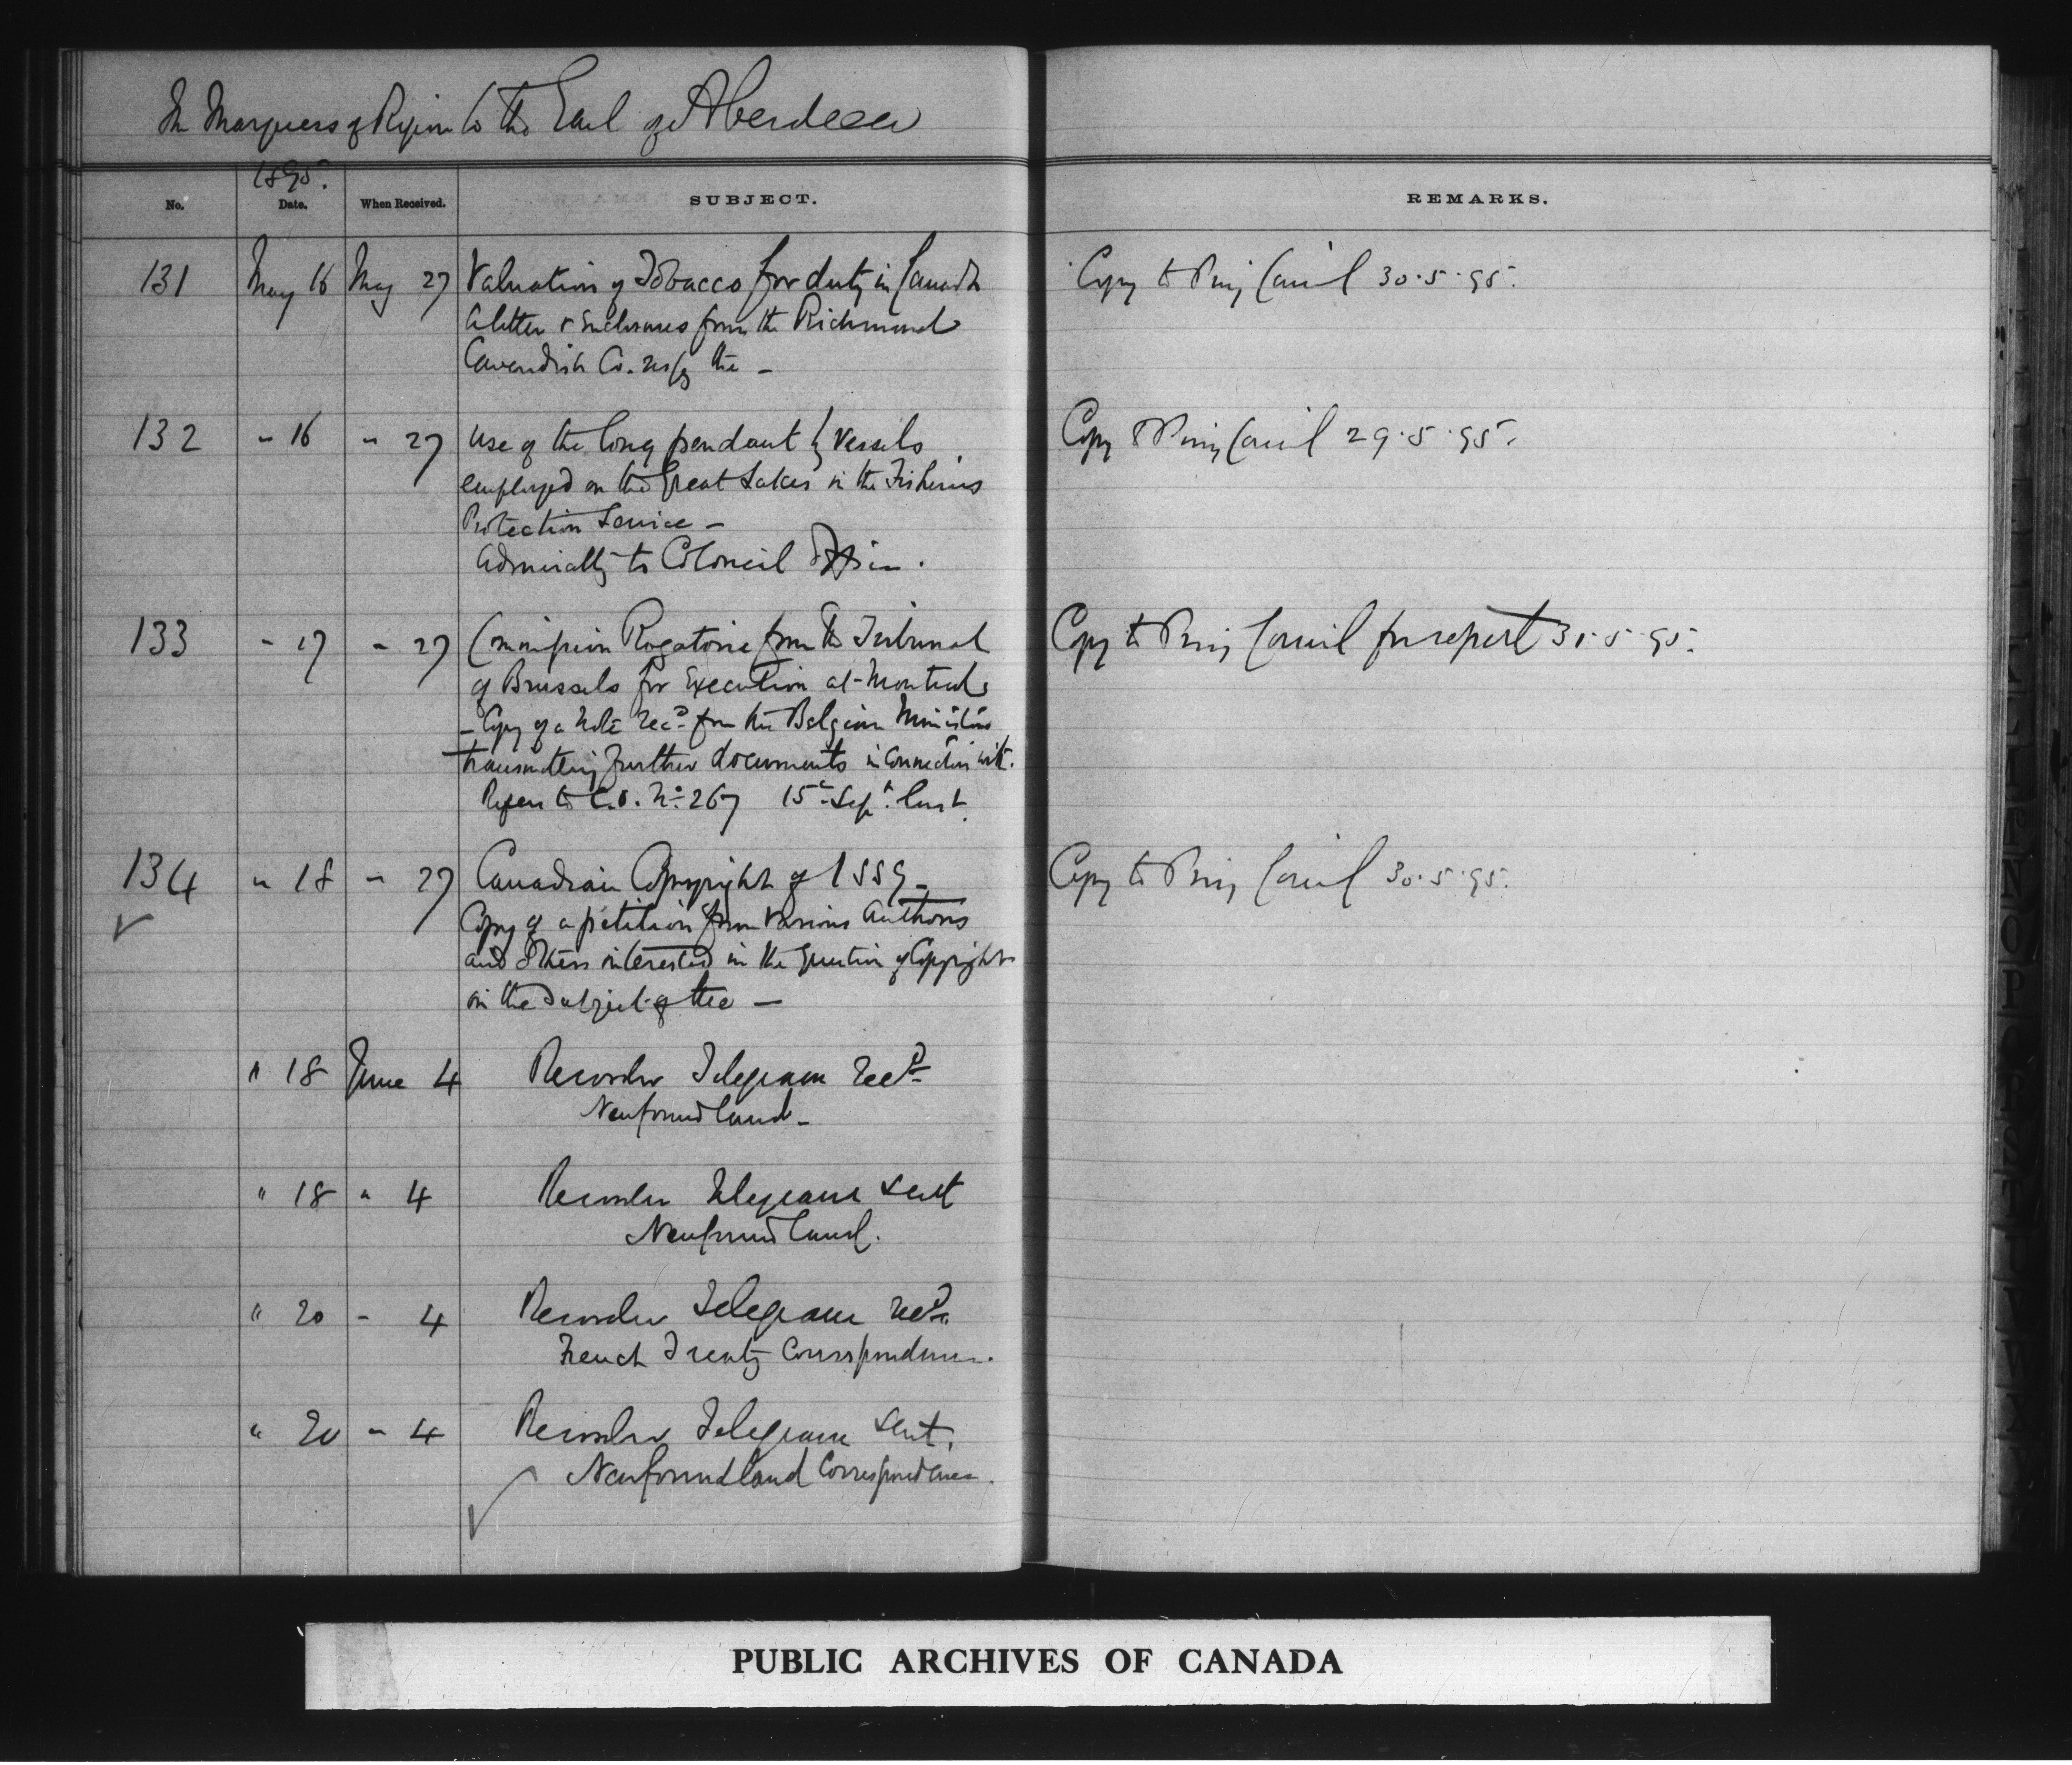 The Marquess of Ripon to the Earl of Aberdeen
1895.
No. Date. When Received. SUBJECT. REMARKS.
131 May 16 May 27 Valuation of Tobacco for duty in Canada Copy to Privy Council 30.5.95.
A letter & enclosures from the Richmond
Cavendish Co. resp'g the —
132 " 16 " 27 Use of the long pendant by Vessels Copy to Privy Council 29.5.95.
employed on the Great Lakes in the Fisheries
Protection Service —
Admiralty to Colonial Office.
133 " 17 " 27 Commission Rogatoire from the Tribunal Copy to Privy Council for report 31.5.95.
of Brussels for Execution at Montreal
— Copy of a Note rec'd from the Belgian Minister
transmitting further documents in connection with.
Refers to C.O. No. 267 15th Sept. last.
134 " 18 " 27 Canadian Copyright of 1889 — Copy to Privy Council 30.5.95.
Copy of a petition from various Authors
and others interested in the question of Copyright
on the subject of the —
" 18 June 4 Recorder Telegram Rec'd
Newfoundland —
" 18 " 4 Recorder Telegram sent
Newfoundland.
" 20 " 4 Recorder Telegram rec'd
French Treaty Correspondence.
" 20 " 4 Recorder Telegram sent.
Newfoundland Correspondence.
PUBLIC ARCHIVES OF CANADA